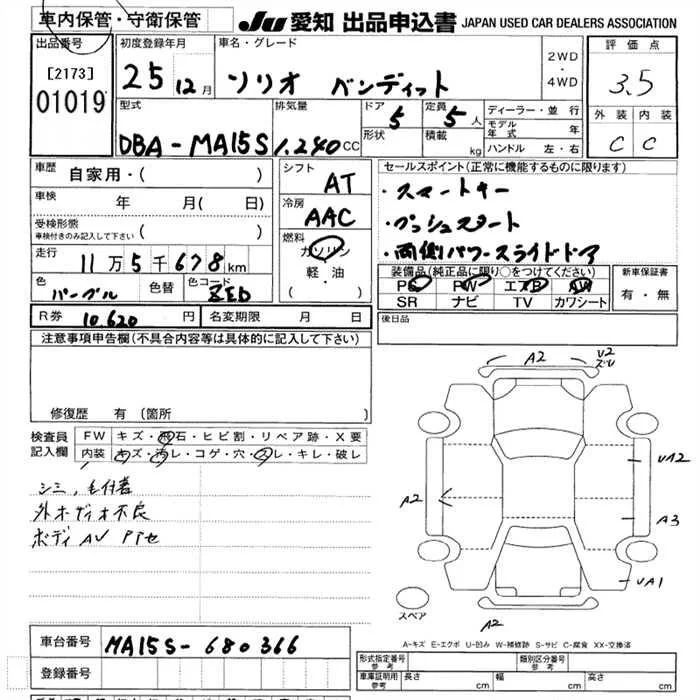 車内保管・守衛保管
JU 愛知 出品申込書 JAPAN USED CAR DEALERS ASSOCIATION
出品番号
[2173]
01019
初度登録年月
25 12月
車名・グレード
ソリオ バンディット
2WD
・
4WD
評価点
3.5
外装 内装
C C
型式
DBA-MA15S
排気量
1.240cc
ドア
5
形状
定員
5人
積載
kg
ディーラー・並行
モデル年式 年
ハンドル 左・右
車歴
自家用・( )
車検
年 月( 日)
受検形態
車検付きのみ記入して下さい ( )
走行
11万5千678km
色
パープル
色替
色コード
ZED
R券 10.620 円
名変期限 月 日
シフト
AT
冷房
AAC
燃料
ガソリン
軽・油
( )
セールスポイント(正常に機能するものに限ります)
・スマートキー
・プッシュスタート
・両側パワースライドドア
装備品(純正品に限り○をつけてください)
PS PW エアB AW
SR ナビ TV カワシート
新車保証書
有・無
後日品
注意事項申告欄(不具合内容等は具体的に記入して下さい)
修復歴 有(箇所 )
検査員記入欄
FW キズ・飛石・ヒビ割・リペア跡・X要
内装 キズ・汚レ・コゲ・穴・スレ・キレ・破レ
シミ、毛付着
外オーディオ不良
ボディAU PTセ
A2
U2
ズレ
UA2
A2
A3
UA1
スペア
A2
A-キズ E-エクボ U-凹み W-補修跡 S-サビ C-腐食 XX-交換済
車台番号 MA15S-680366
登録番号
形式指定番号 参考
類別区分番号 参考
車庫証明用 参考 長さ cm 幅 cm 高さ cm